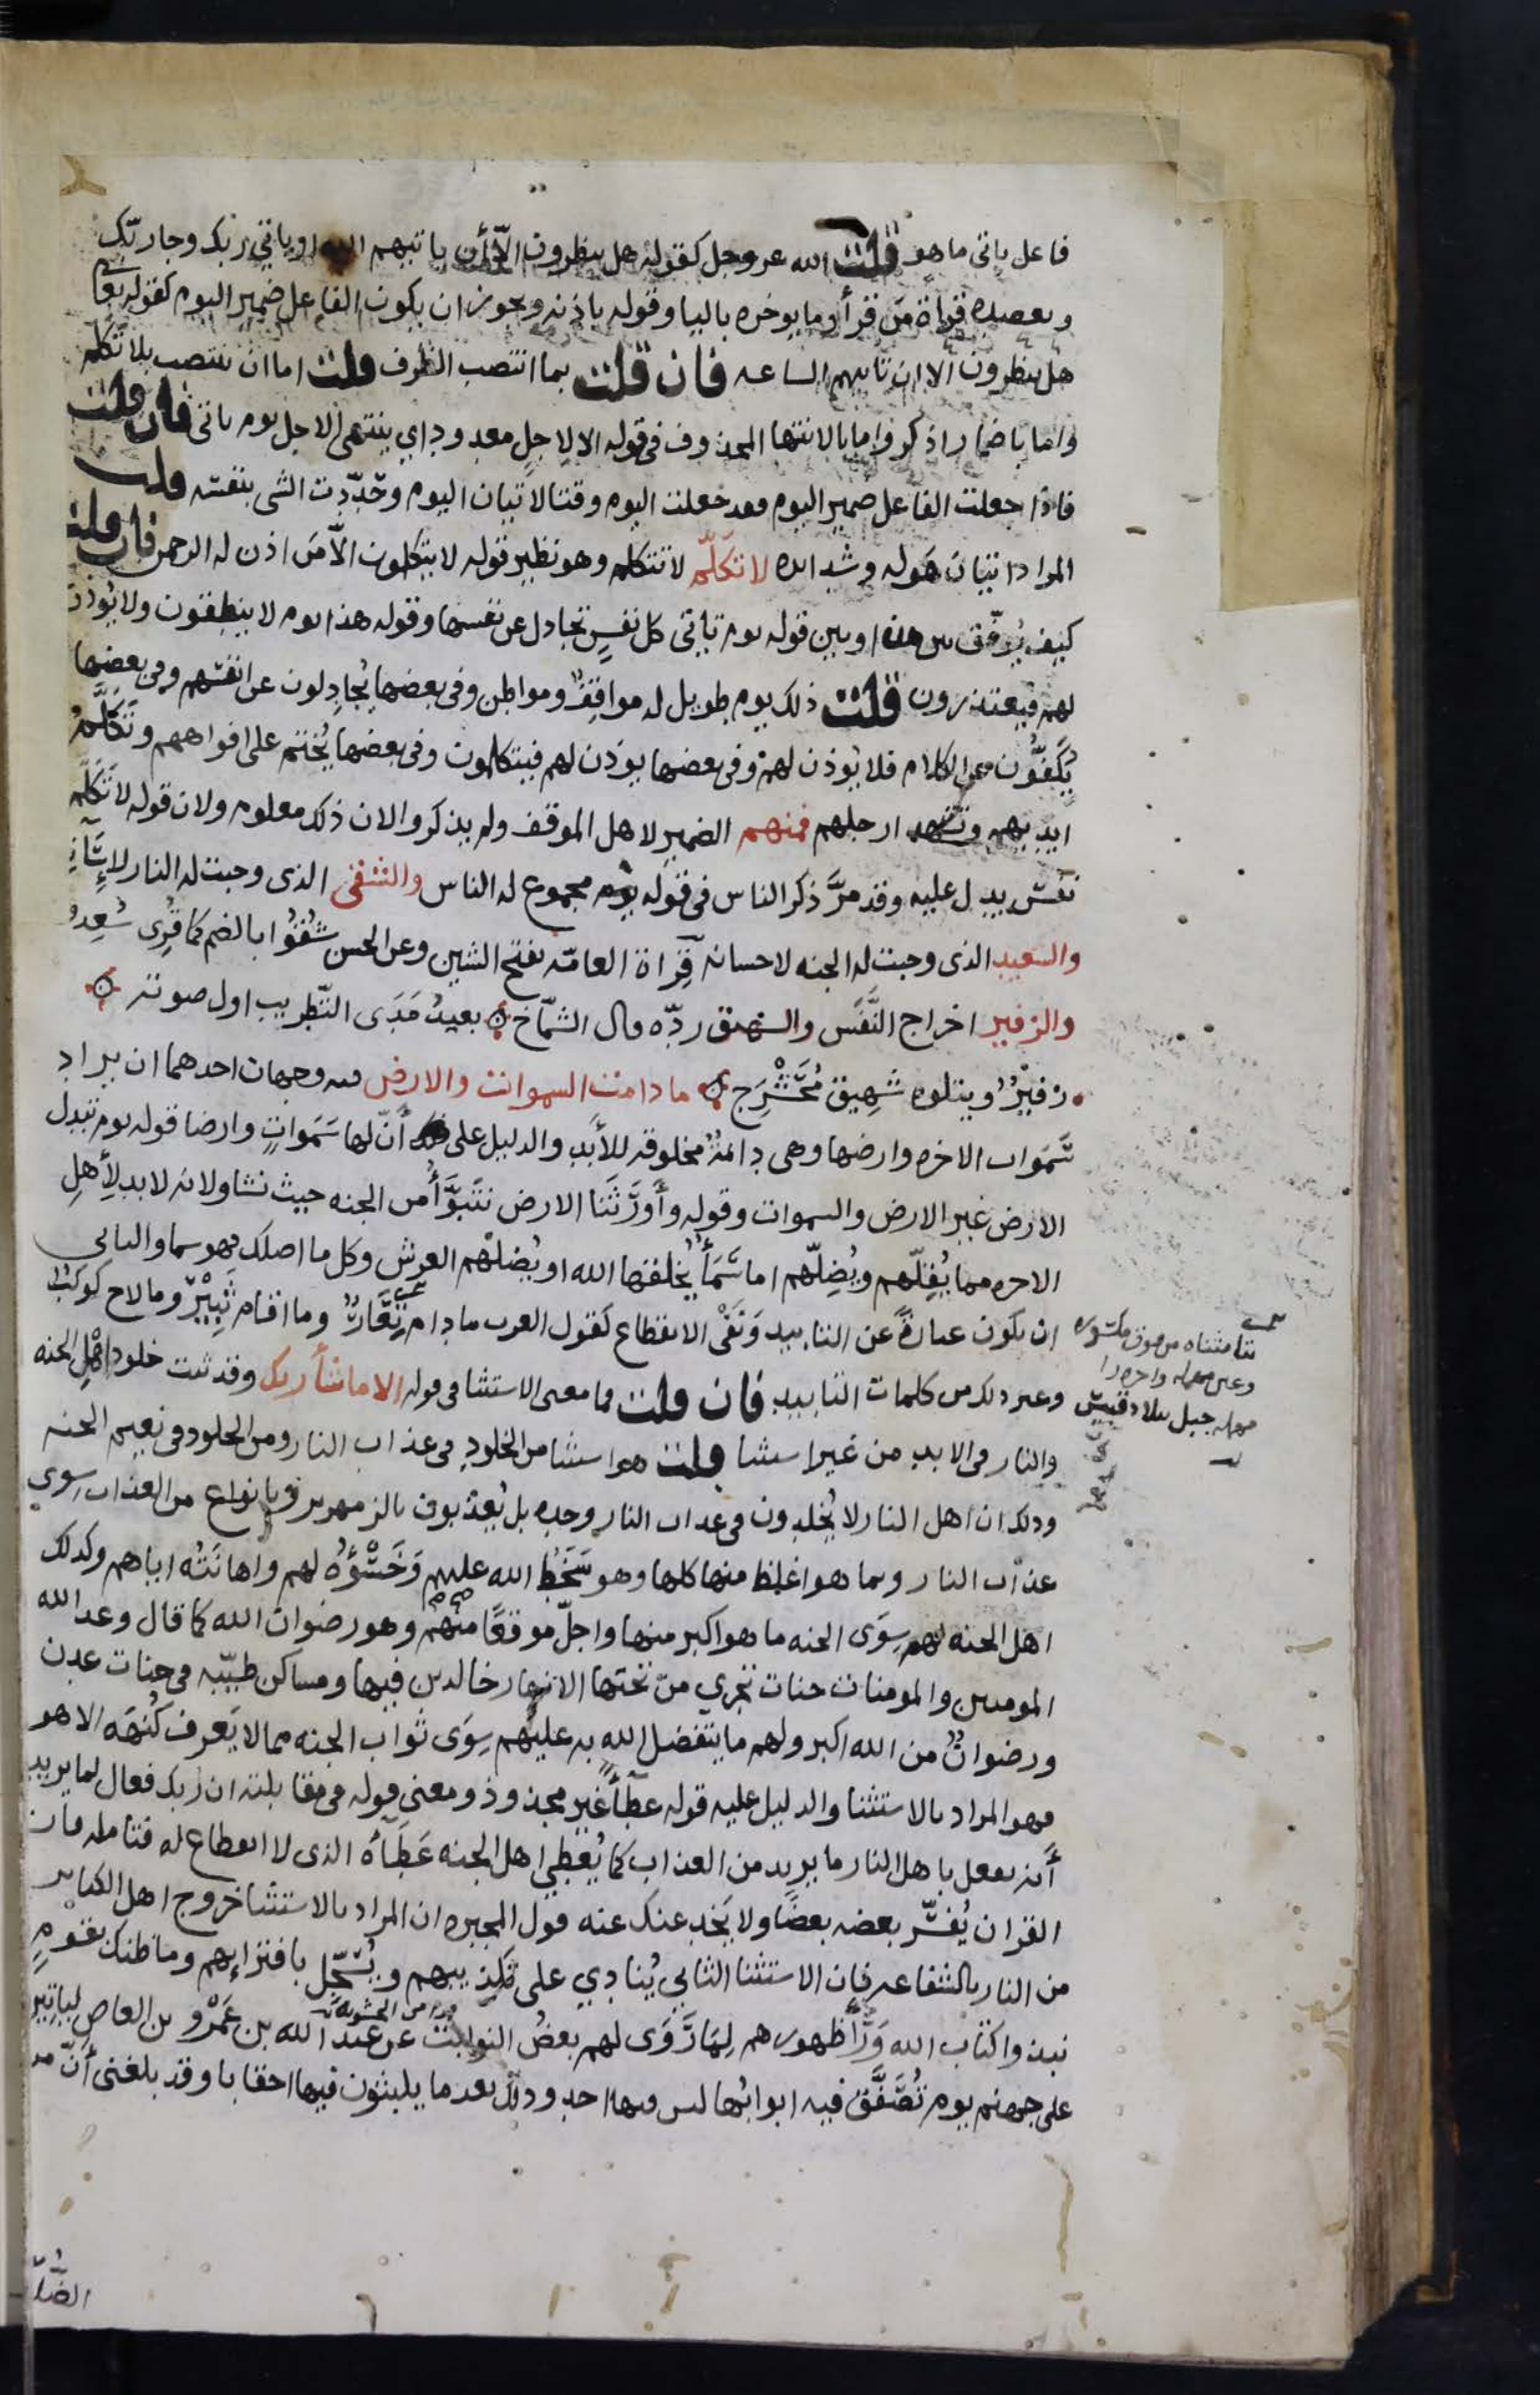 فاعل ياتى ما هو قلت الله عز وجل كقوله هل ينظرون الّا أن ياتيهم الله او ياتي ربك وجا ربّك
وبعضده قراة مَن قرأ وما يوخره باليا وقوله باذنه ويجوز ان يكون الفاعل ضمير اليوم كقوله تعا
هل ينظرون الا ان تاتيهم الساعه فان قلت بما انتصب الظرف قلت اما ان ينتصب بلا تكلم
واما باضمار اذكر واما بالانتها المحذوف فى قوله الا لاجلٍ معدود اي ينتهى الاجل يوم ياتى فان قلت
فاذا جعلت الفاعل ضمير اليوم فقد جعلت اليوم وقتا لاتيان اليوم وحدّدت الشى بنفسه قلت
المراد اتيان هَوله وشدايده لا تكلّم لا تتكلم وهو نظير قوله لا يتكلمون الّا مَن اذن له الرحمن فان قلت
كيف يُوفّق بين هذا وبين قوله يوم تاتى كل نفسٍ تجادل عن نفسها وقوله هذا يوم لا ينطقون ولا يُوذن
لهم فيعتذرون قلت ذلك يوم طويل له مواقِفٌ ومواطن وفى بعضها يُجادِلون عن انفسهم وفى بعضها
يُكَفّون عن الكلام فلا يُوذن لهم وفى بعضها يوذن لهم فيتكلمون وفى بعضها يُختم على افواههم وتَكَلَّمُ
ايديهم وتشهد ارجلهم فمنهم الضمير لاهل الموقف ولم يذكروا لان ذلك معلوم ولان قوله لا تكلم
نفسٌ يدل عليه وقد مرَّ ذكر الناس فى قوله يوم مجموع له الناس والشقى الذى وجبت له النار لاساته
والسعيد الذى وجبت له الجنه لاحسانه قِراة العامّه بفتح الشين وعن الحسن شُقُوا بالضم كما قُرِى سُعِدُوا
والزفير اخراج النَّفَس والشهيق ردّه قال الشمّاخ بعيدُ مَدَى التَّطريب اول صوته
زفيرٌ ويتلوه شَهِيق مُحَشْرَج ما دامت السموات والارض فيه وجهان احدهما ان يراد
سَمَوات الاخره وارضها وهى دائمةٌ مخلوقه للأَبَدِ والدليل على أنّ لها سَمَواتٍ وارضا قوله يوم تبدل
الارض غير الارض والسموات وقوله وأَورَثَنَا الارض نتبوَّأُ من الجنه حيث نشا ولانه لا بد لِأَهلِ
الاخره مما يُقِلّهم ويُظِلّهم اما سَمَأٌ يخلقها الله او يُظلهم العرش وكل ما اظلك فهو سما والثانى
ان يكون عبارةً عن التابيد ونَفْى الانقطاع كقول العرب ما دام تِعَارٌ وما اقام ثَبِيْرٌ وما لاح كوكبٌ
وغير ذلك من كلمات التابيد فان قلت فما معنى الاستثنا فى قوله الا ما شأ ربك وقد ثبت خلود اهل الجنه
والنار فى الابد من غير استثنا قلت هو استثنا من الخلود فى عذاب النار ومن الخلود فى نعيم الجنه
وذلك ان اهل النار لا يُخلدون فى عذاب النار وحده بل يُعذبون بالزمهرير وبانواع من العذاب سِوى
عذاب النار وبما هو اغلظ منها كلها وهو سَخَطُ الله عليهم وخَسْؤُهُ لهم واهانَتُه اياهم وكذلك
اهل الجنه لهم سِوَى الجنه ما هو اكبر منها واجلّ موقعًا منهم وهو رضوان الله كما قال وعد الله
المومنين والمومنات جنات تجري من تحتها الانهار خالدين فيها ومساكن طيّبه فى جنات عدن
ورضوانٌ من الله اكبر ولهم ما يتفضل الله به عليهم سِوَى ثواب الجنه مما لا يَعرف كُنهَه الا هو
فهو المراد بالاستثنا والدليل عليه قوله عطأً غير مجذوذ ومعنى قوله فى مقابلته ان ربك فعال لما يريد
أنه يفعل باهل النار ما يريد من العذاب كما يُعْطِي اهل الجنه عَطَاهُ الذى لا انقطاع له فتامله فان
القران يُفسّر بعضه بعضًا ولا يَخدعنك عنه قول المجبره ان المراد بالاستثنا خروج اهل الكباير
من النار بالشفاعه فان الاستثنا الثانى يُنادِي على تكذيبهم ويُسَجِّل بافترايهم وما ظنك بقَوْمٍ
نبذوا كتاب الله ورَأَ ظهورهم لِمَا رَوَى لهم بعضُ النوابت عن عبد الله بن عَمْرو بن العاص لياتين
على جهنم يوم تُصَفَّقُ فيه ابوابُها ليس فيها احد وذلك بعد ما يلبثون فيها احقابا وقد بلغنى أنّ من
تا مثناه من فوق مكسوره
وعين مهمله واخره را
مهمله جبل ببلاد قيس
الضُلّا